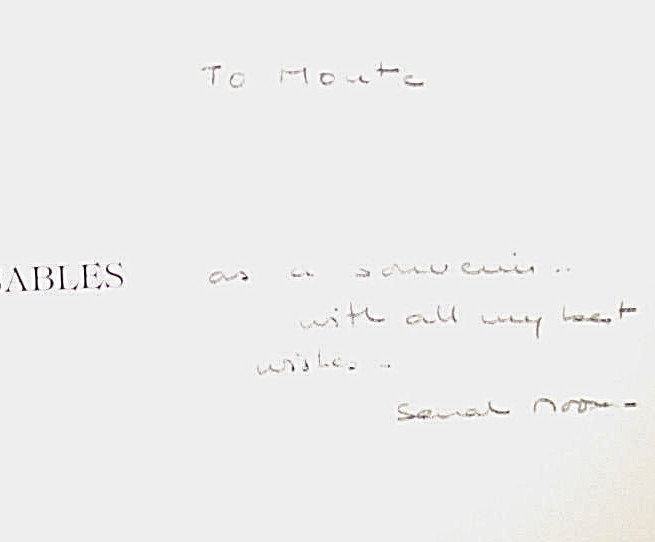 To Monte
SABLES as a souvenir..
with all my best
wishes..
Sarah Moon -